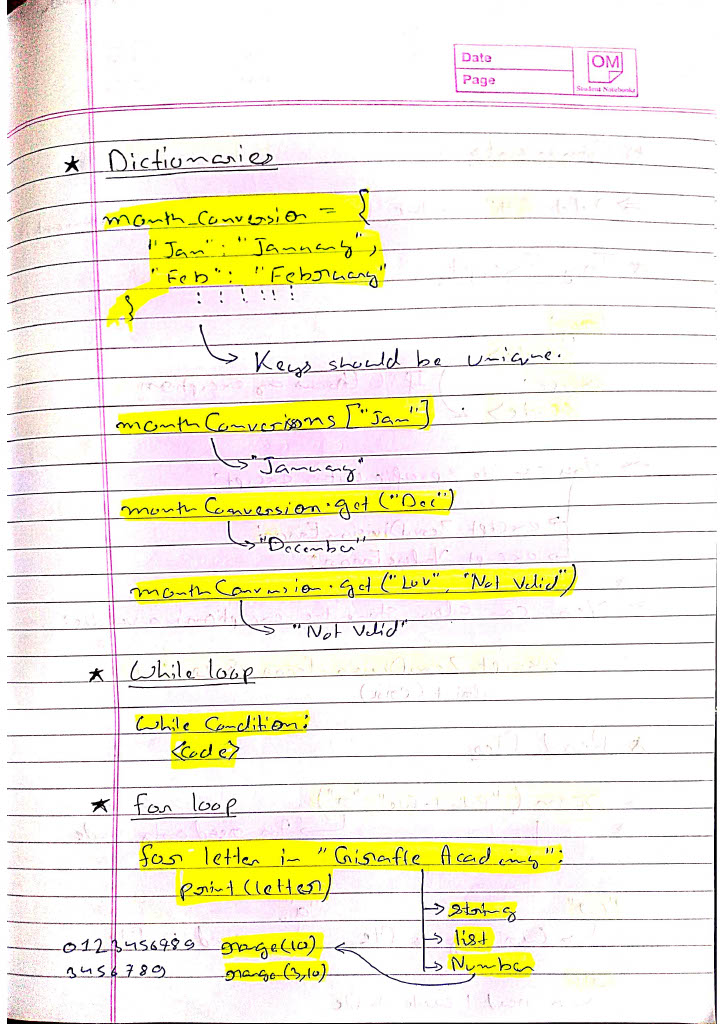 Date
Page
OM
Student Notebooks
★ Dictionaries
month_Conversion = {
"Jan": "January",
"Feb": "February"
}
Keys should be unique.
monthConversions ["Jan"]
"January"
monthConversion.get ("Dec")
"December"
monthConversion.get ("Luv", "Not Valid")
"Not Valid"
★ While loop
While Condition:
<Code>
★ for loop
for letter in "Giraffe Academy":
print (letter)
string
list
Number
0123456789 range(10)
3456789 range(3,10)